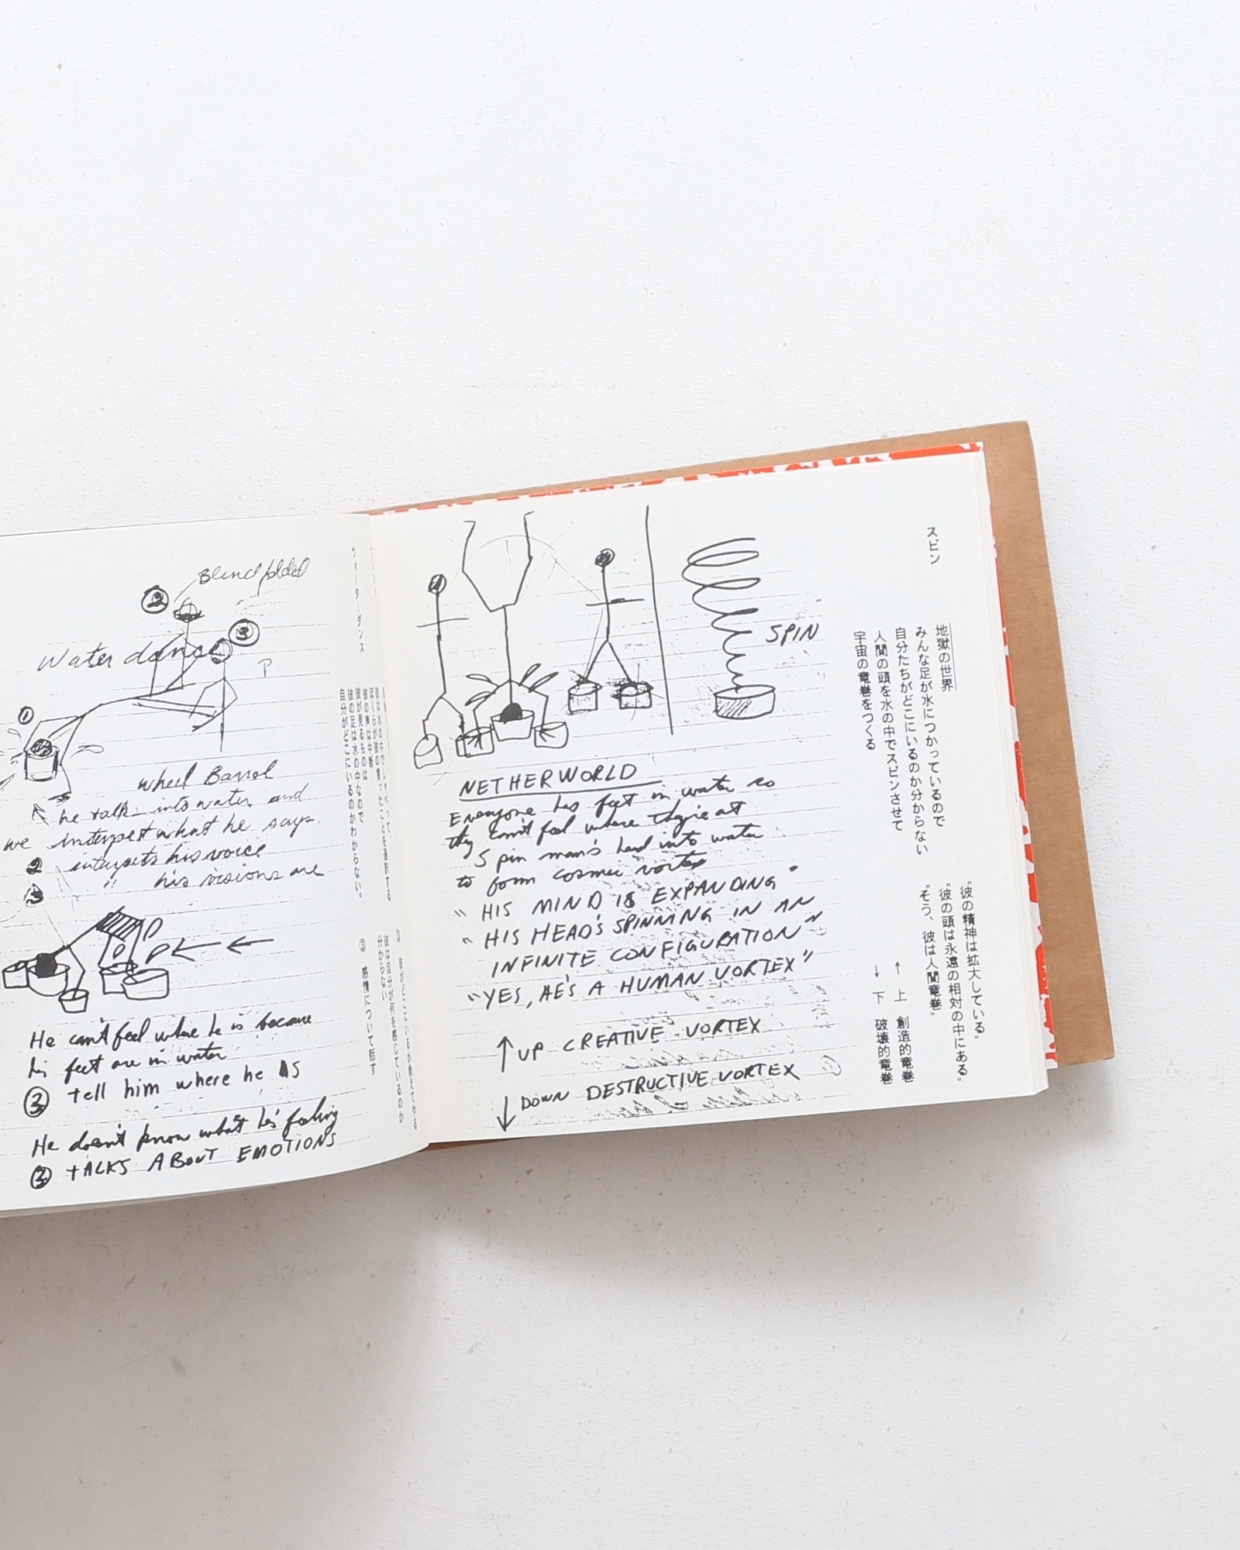 Blindfolded
2
3
Water dance
P
1
wheel Barrol
he talk into water and
we interpret what he says.
2 interprets his voice
3 " his visions are
P
P
He can't feel where he is because
his feet are in water
3 tell him where he is
He doesn't know what he's feeling
3 TALKS ABOUT EMOTIONS
ウォーターダンス
彼が見るものは
彼の足は水の中なので
自分がどこにいるのかわからない。
③ 感情について話す
SPIN
NETHERWORLD
Everyone has feet in water so
they can't feel where they're at
Spin man's head into water
to form cosmic vortex
"HIS MIND IS EXPANDING"
"HIS HEAD'S SPINNING IN AN
INFINITE CONFIGURATION"
"YES, HE'S A HUMAN VORTEX"
↑ UP CREATIVE VORTEX
↓ DOWN DESTRUCTIVE VORTEX
スピン
地獄の世界
みんな足が水につかっているので
自分たちがどこにいるのか分からない
人間の頭を水の中でスピンさせて
宇宙の竜巻をつくる
"彼の精神は拡大している"
"彼の頭は永遠の相対の中にある"
"そう、彼は人間竜巻"
↑ 上 創造的竜巻
↓ 下 破壊的竜巻